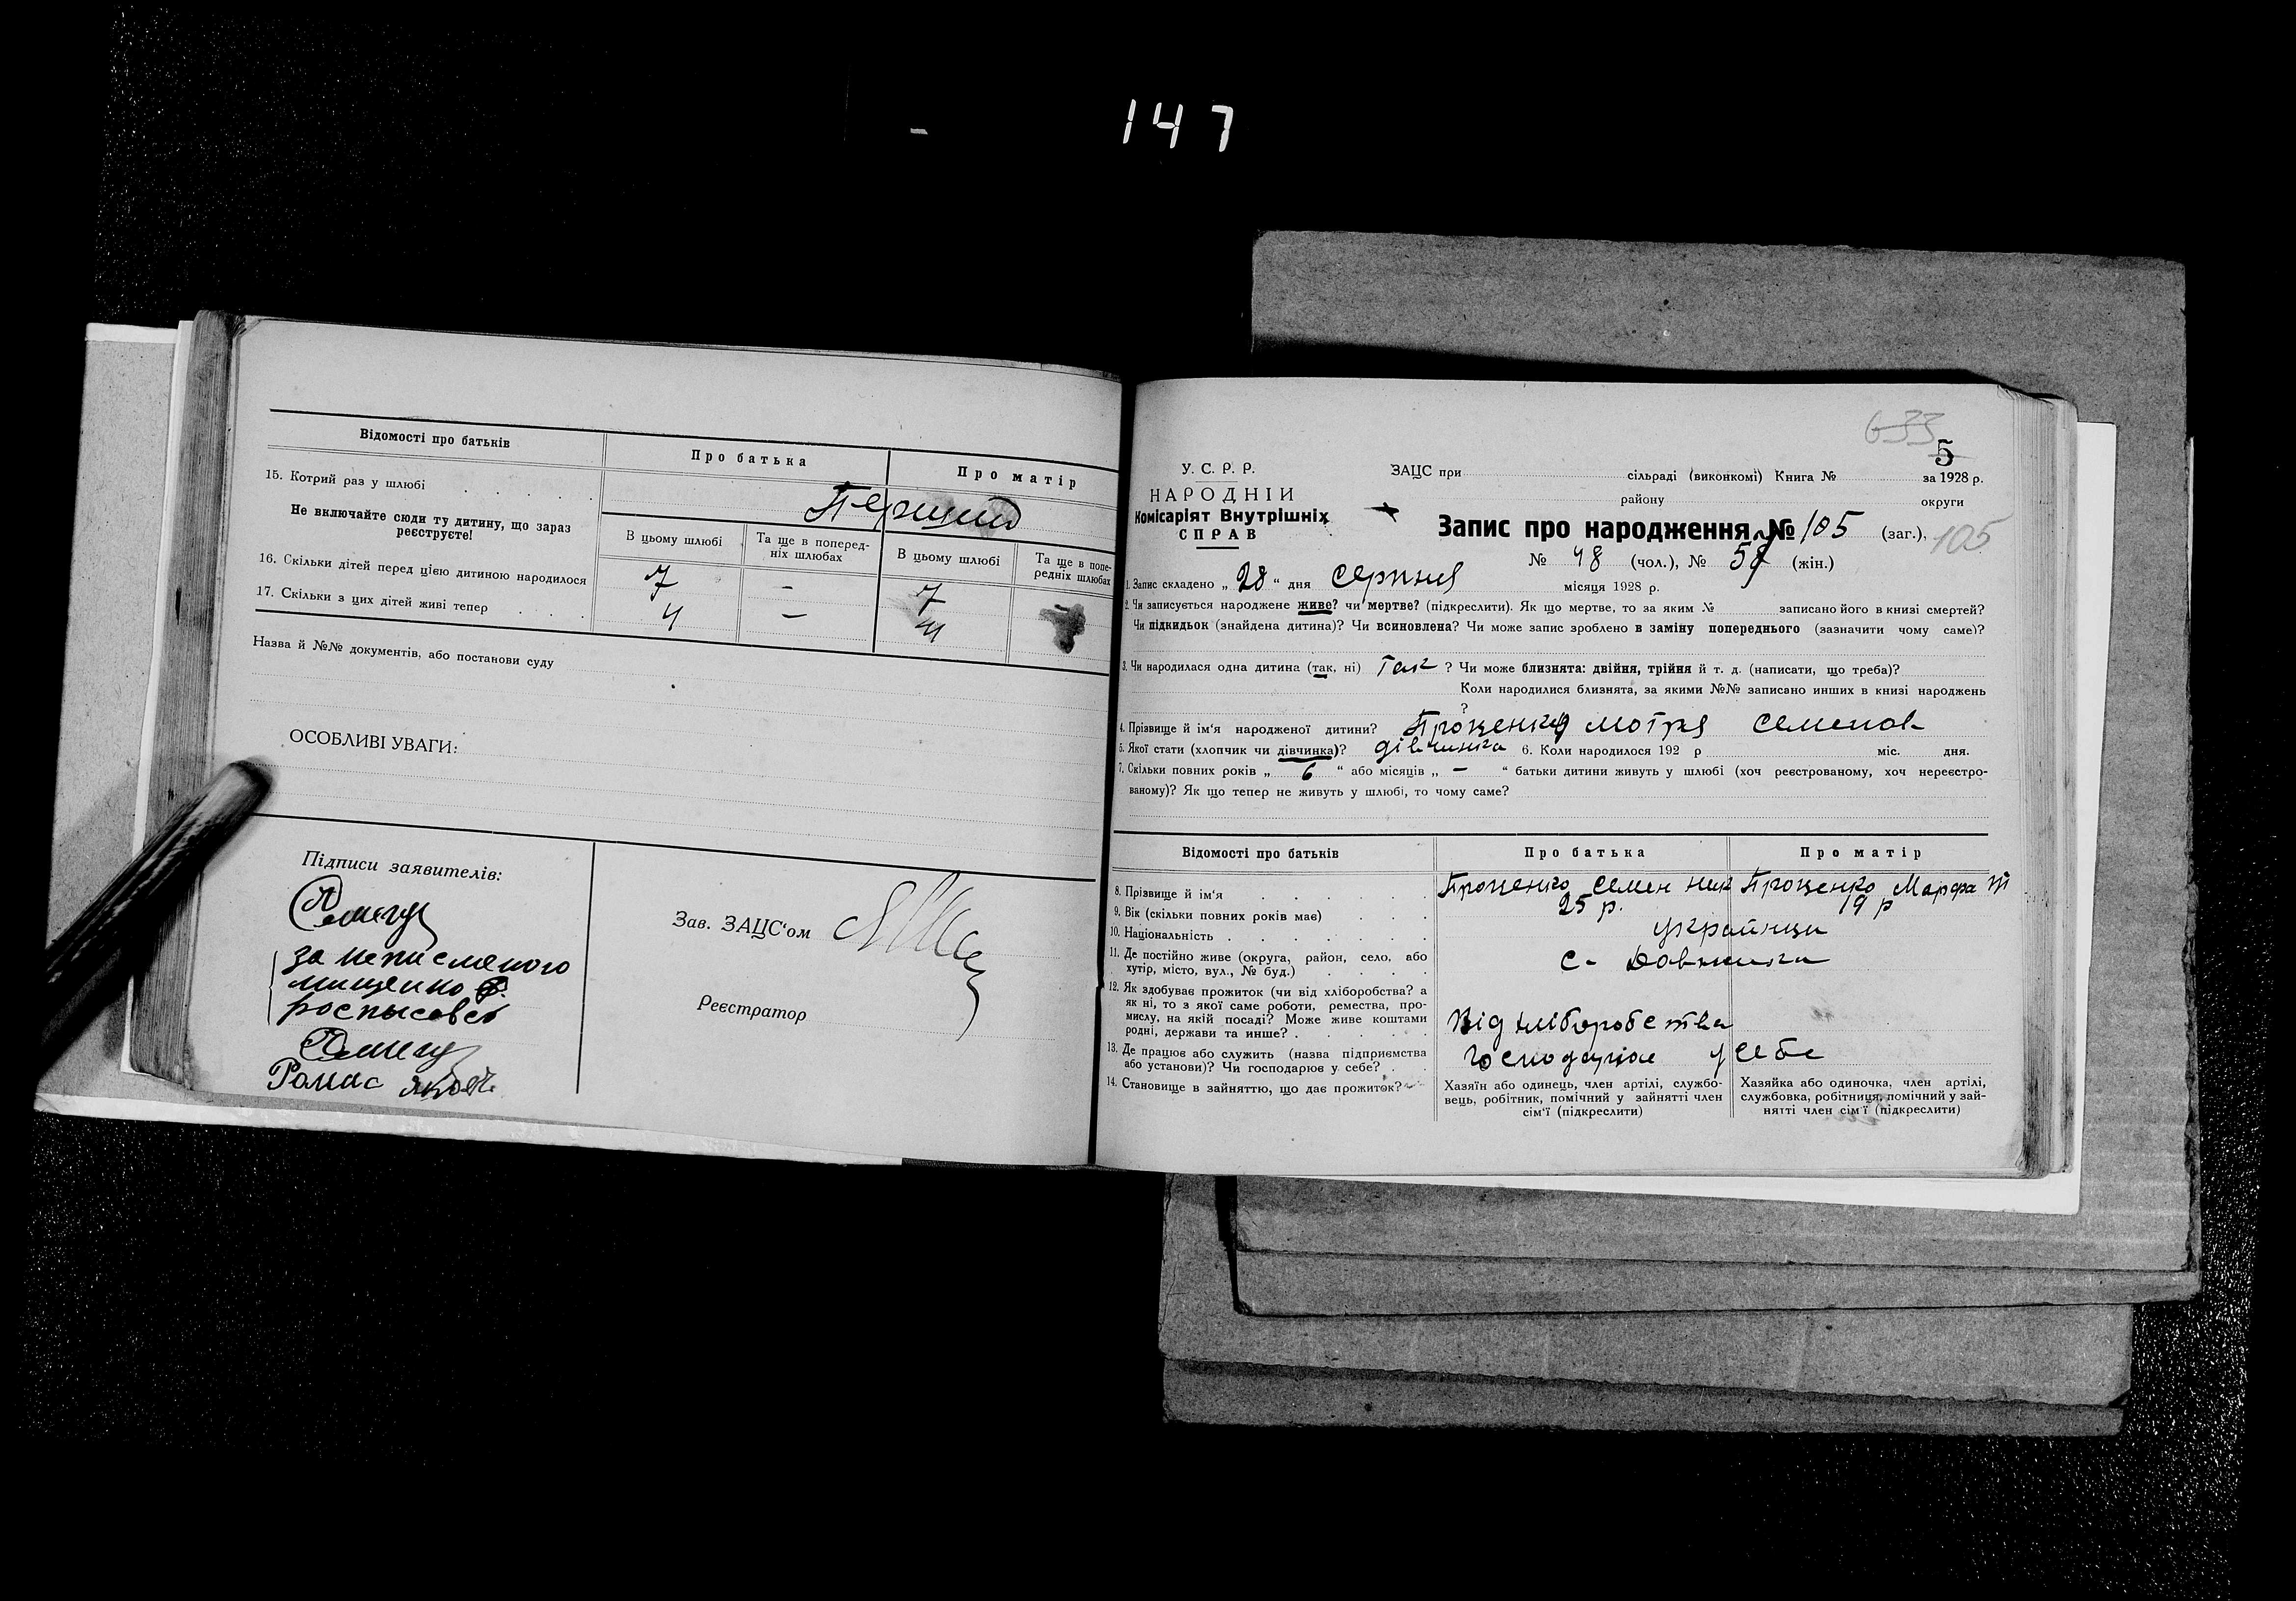 147
Відомості про батьків
Про батька
Про матір
15. Котрий раз у шлюбі
Перший
Не включайте сюди ту дитину, що зараз реєструєте!
В цьому шлюбі
Та ще в попередніх шлюбах
В цьому шлюбі
Та ще в попередніх шлюбах
16. Скільки дітей перед цією дитиною народилося
7 - 7
17. Скільки з цих дітей живі тепер
4 - 4
Назва й №№ документів, або постанови суду
ОСОБЛИВІ УВАГИ:
Підписи заявителів:
за неписменого
мищенко Ф.
роспысовсь
Ромас
Зав. ЗАЦС'ом
Реєстратор
633
5
У. С. Р. Р.
НАРОДНІЙ
Комісаріят Внутрішніх
СПРАВ
ЗАЦС при сільраді (виконкомі) Книга № за 1928 р.
району округи
Запис про народження № 105 (заг.), 105
№ 48 (чол.), № 57 (жін.)
1. Запис складено „ 28 “ дня Серпня місяця 1928 р.
2. Чи записується народжене живе? чи мертве? (підкреслити). Як що мертве, то за яким № записано його в книзі смертей?
Чи підкидьок (знайдена дитина)? Чи всиновлена? Чи може запис зроблено в заміну попереднього (зазначити чому саме)?
3. Чи народилася одна дитина (так, ні) Так ? Чи може близнята: двійня, трійня й т. д. (написати, що треба)?
Коли народилися близнята, за якими №№ записано инших в книзі народжень
?
4. Прізвище й ім'я народженої дитини? Проценко Мотря Семенов
5. Якої стати (хлопчик чи дівчинка)? дівчинка 6. Коли народилося 192 р міс. дня.
7. Скільки повних років „ 6 “ або місяців „ - “ батьки дитини живуть у шлюбі (хоч реєстрованому, хоч нереєстро-
ваному)? Як що тепер не живуть у шлюбі, то чому саме?
Відомості про батьків
Про батька
Про матір
8. Прізвище й ім'я
Проценко Семен Ник
Проценко Марфа Т
9. Вік (скільки повних років має)
25 р.
19 р
10. Національність
Українци
11. Де постійно живе (округа, район, село, або
хутір, місто, вул., № буд.)
с- Довжика
12. Як здобуває прожиток (чи від хліборобства? а
як ні, то з якої саме роботи, ремества, про-
мислу, на якій посаді? Може живе коштами
родні, держави та инше?
Від хліборобства
13. Де працює або служить (назва підприємства
або установи)? Чи господарює у себе?
господарює у себе
14. Становище в зайняттю, що дає прожиток?
Хазяїн або одинець, член артілі, службо-
вець, робітник, помічний у зайнятті член
сім'ї (підкреслити)
Хазяйка або одиночка, член артілі,
службовка, робітниця, помічний у зай-
нятті член сім'ї (підкреслити)